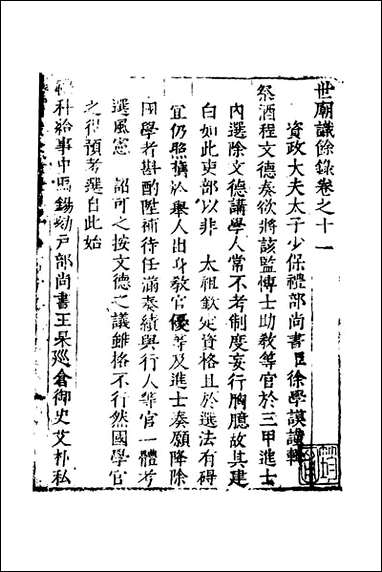 世廟識餘錄卷之十一
資政大夫太子少保禮部尚書臣徐學謨謹輯
祭酒程文德奏欲將該監博士助教等官於三甲進士
內選除文德講學人常不考制度妄行胸臆故其建
白如此吏部以非 太祖欽定資格且於選法有碍
宜仍照舊於舉人出身教官優等及進士奏願降除
國學者斟酌陞補待任滿奏績與行人等官一體考
選風憲 詔可之按文德之議雖格不行然國學官
之得預考選自此始
科給事中馬錫劾戶部尚書王杲廵倉御史艾朴私